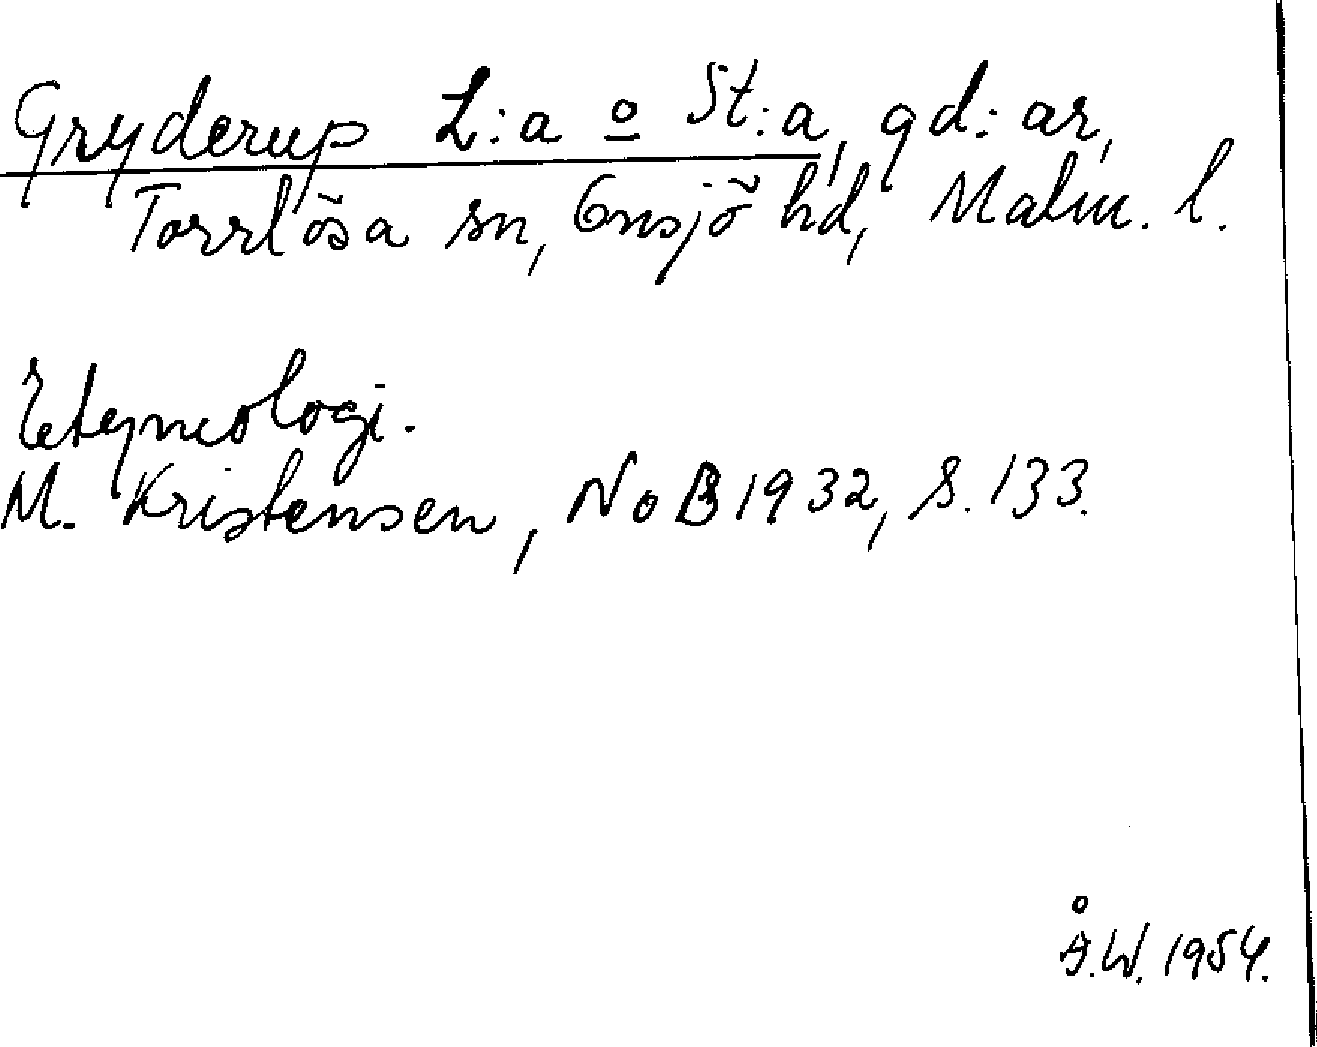 Gryderup L:a o St:a, gd:ar,
Torrlösa sn, Onsjö hd, Malm. l.
Etymologi.
M. Kristensen, NoB 1932, S. 133.
Å.W. 1954.